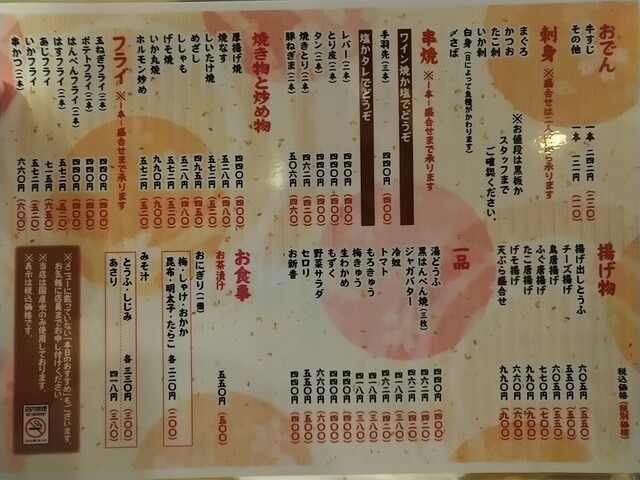 おでん
牛すじ 一本 二四二円(二二〇)
その他 一本 一三二円(一二〇)
刺身 ※盛合せは二人前から承ります
まぐろ
かつお
たこ刺
いか刺
白身(日によって魚種がかわります)
〆さば
※お値段は黒板か
スタッフまで
ご確認ください。
串焼 ※一本〜盛合せまで承ります
ワイン焼か塩でどうぞ
手羽先(三本) 四四〇円(四〇〇)
塩かタレでどうぞ
レバー(二本) 四四〇円(四〇〇)
とり皮(二本) 四四〇円(四〇〇)
タン(二本) 四四〇円(四〇〇)
焼きとり(二本) 四六二円(四二〇)
豚ねぎま(二本) 五〇六円(四六〇)
焼き物と炒め物
厚揚げ焼 四四〇円(四〇〇)
焼なす 五二八円(四八〇)
しいたけ焼 五七二円(五二〇)
めざし 四九五円(四五〇)
ししゃも 五二八円(四八〇)
げそ焼 五七二円(五二〇)
いか丸焼 九九〇円(九〇〇)
ホルモン炒め 五七二円(五二〇)
フライ ※一本〜盛合せまで承ります
玉ねぎフライ(二本) 四四〇円(四〇〇)
ポテトフライ(二本) 四四〇円(四〇〇)
はんぺんフライ(二本) 四四〇円(四〇〇)
はすフライ(二本) 五七二円(五二〇)
あじフライ 七一五円(六五〇)
いかフライ 五七二円(五二〇)
串かつ(二本) 六六〇円(六〇〇)
税込価格(税別価格)
揚げ物
揚げ出しとうふ 六〇五円(五五〇)
チーズ揚げ 六〇五円(五五〇)
鳥唐揚げ 六〇五円(五五〇)
ふぐ唐揚げ 七七〇円(七〇〇)
たこ唐揚げ 九九〇円(九〇〇)
げそ揚げ
天ぷら盛合せ 九九〇円(九〇〇)
一品
湯どうふ 四四〇円(四〇〇)
黒はんぺん焼(三枚) 四六二円(四二〇)
ジャガバター 四六二円(四二〇)
冷奴 四一八円(三八〇)
トマト 四六二円(四二〇)
もろきゅう 四一八円(三八〇)
梅きゅう 四一八円(三八〇)
生わかめ 四四〇円(四〇〇)
もずく 五五〇円(五〇〇)
野菜サラダ 六六〇円(六〇〇)
セロリ 五五〇円(五〇〇)
お新香 四四〇円(四〇〇)
お食事
お茶漬け 五五〇円(五〇〇)
おにぎり(一個)
梅・しゃけ・おかか
昆布・明太子・たらこ 各 二二〇円(二〇〇)
みそ汁
とうふ・しじみ 各 三三〇円(三〇〇)
あさり 四一八円(三八〇)
※メニューに載っていない「本日のおすすめ」もございます。
お気軽に店員までお申し付けください。
※当店は国産米のみ使用しております
※表示は税込価格です。
店内禁煙